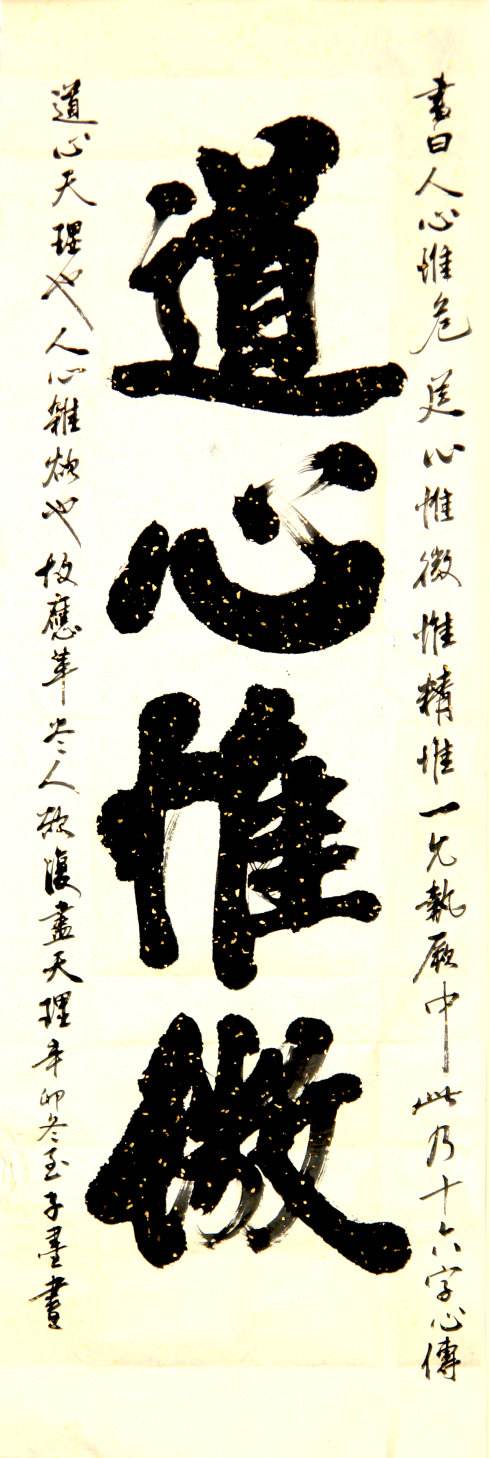 書曰人心惟危道心惟微惟精惟一允執厥中此乃十六字心傳
道心惟微
道心天理也人心雜欲也故應革尽人欲復盡天理辛卯冬至子墨書